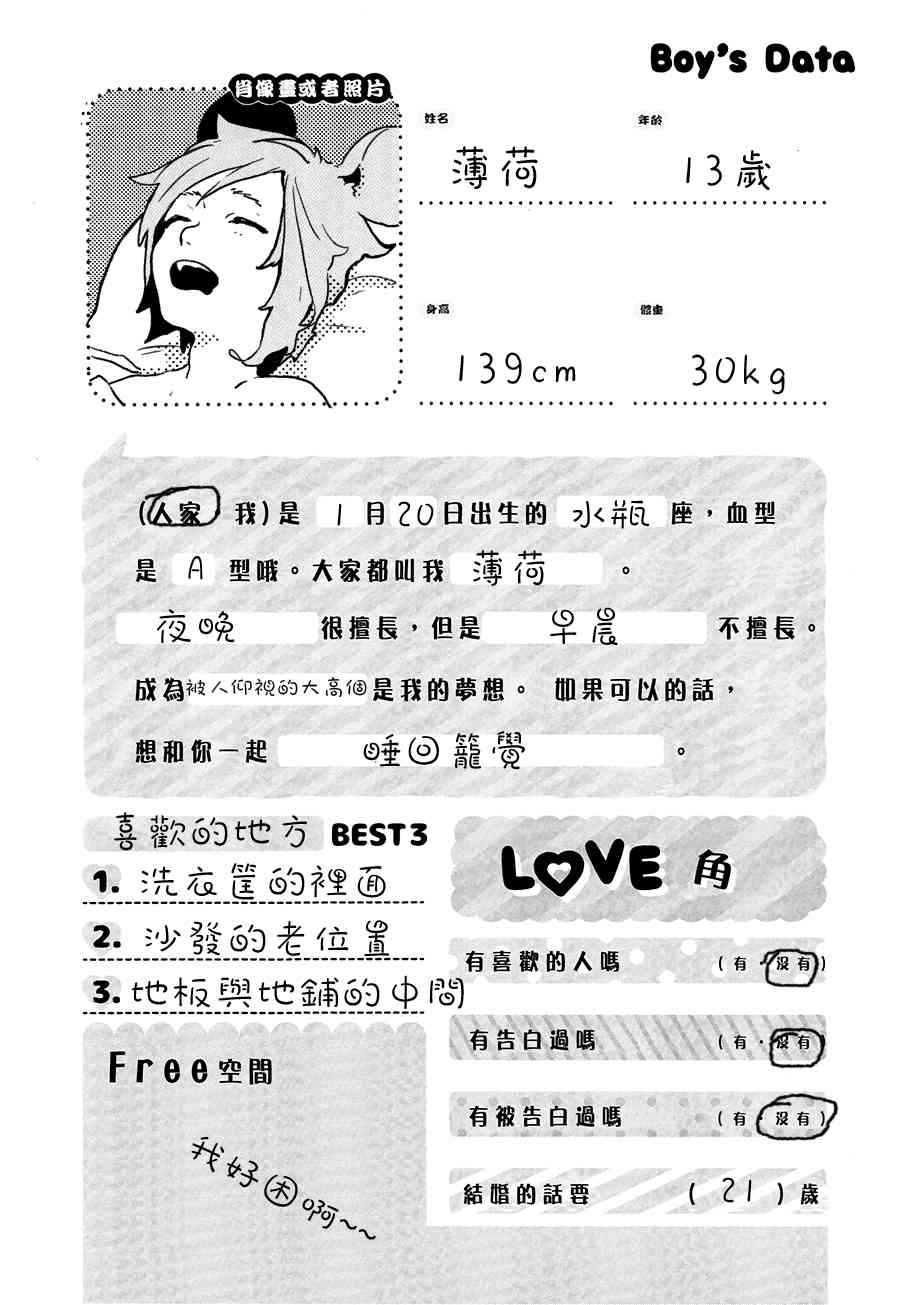 Boy's Data
肖像畫或者照片
姓名
薄荷
年齡
13歲
身高
139cm
體重
30kg
(人家 我)是 1月20日出生的 水瓶 座,血型
是 A 型哦。大家都叫我 薄荷 。
夜晚 很擅長,但是 早晨 不擅長。
成為被人仰視的大高個是我的夢想。 如果可以的話,
想和你一起 睡回籠覺 。
喜歡的地方 BEST3
1. 洗衣筐的裡面
2. 沙發的老位置
3. 地板與地鋪的中間
Free空間
我好困啊~~
LOVE 角
有喜歡的人嗎 (有・沒有)
有告白過嗎 (有・沒有)
有被告白過嗎 (有・沒有)
結婚的話要 ( 21 )歲